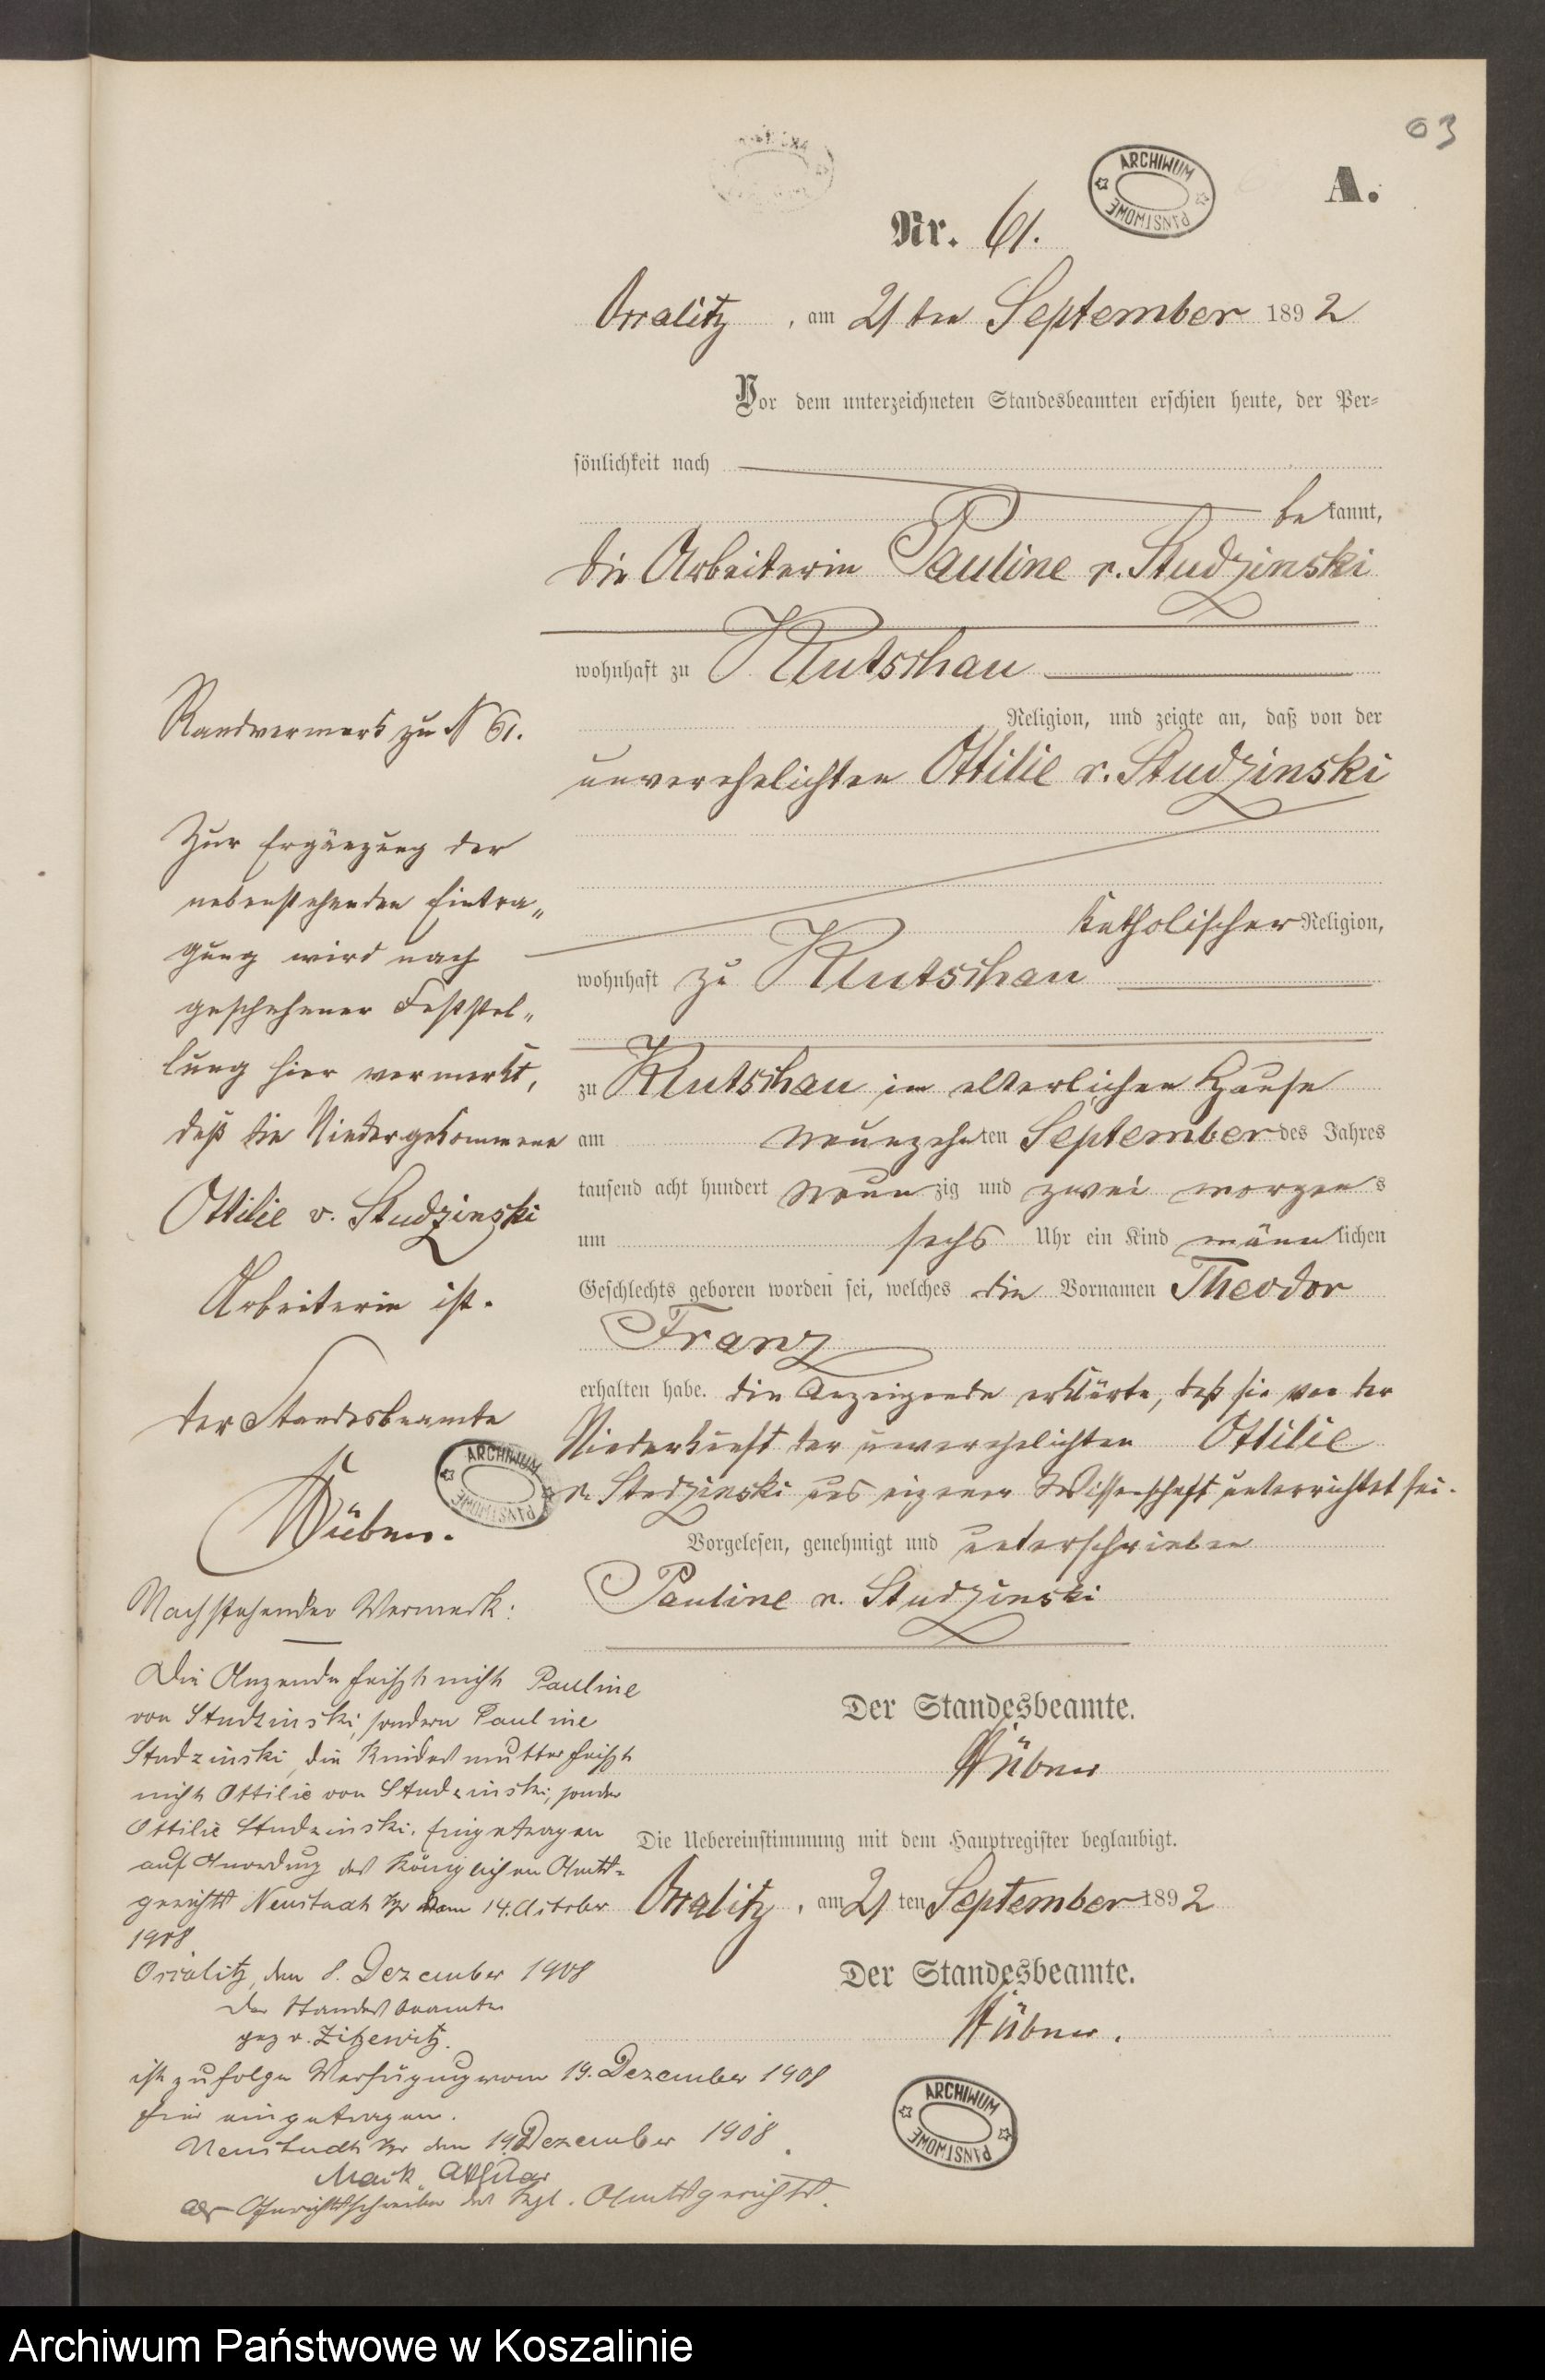 03
ARCHIWUM PAŃSTWOWE
A.
Nr. 61.
Ossalitz, am 21ten September 1892
Vor dem unterzeichneten Standesbeamten erschien heute, der Per-
sönlichkeit nach
bekannt,
die Arbeiterin Pauline v. Studzinski
wohnhaft zu Klutschau
Religion, und zeigte an, daß von der
unverehelichten Ottilie v. Studzinski
katholischer Religion,
wohnhaft zu Klutschau
zu Klutschau im elterlichen Hause
am neunzehnten September des Jahres
tausend acht hundert neunzig und zwei morgens
um sechs Uhr ein Kind männlichen
Geschlechts geboren worden sei, welches die Vornamen Theodor
Franz
erhalten habe. Die Anzeigende erklärte, daß sie von der
Niederkunft der unverehelichten Ottilie
v. Studzinski aus eigener Wissenschaft unterrichtet sei.
Vorgelesen, genehmigt und unterschrieben
Pauline v. Studzinski
Der Standesbeamte.
Die Uebereinstimmung mit dem Hauptregister beglaubigt.
Ossalitz, am 21ten September 1892
Der Standesbeamte.
ARCHIWUM PAŃSTWOWE
Randvermerk zu N 61.
Zur Ergänzung der
nebenstehenden Eintra„
gung wird nach
geschehener Feststel„
lung hier vermerkt,
daß die Niedergekommene
Ottilie v. Studzinski
Arbeiterin ist.
Der Standesbeamte
ARCHIWUM PAŃSTWOWE
Nachstehender Vermerk:
Die heißt nicht Pauline
von Studzinski, sondern Pauline
Studzinski, die Kindesmutter heißt
nicht Ottilie von Studzinski, sondern
Ottilie Studzinski. Eingetragen
auf Anordnung des Königlichen Amts-
gerichts Neustadt Wpr vom 14. Oktober
1908
Ossalitz, den 8. Dezember 1908
Der Standesbeamte
gez v. Zitzewitz.
ist zufolge Verfügung vom 19. Dezember 1908
hier eingetragen.
Neustadt Wpr den 19. Dezember 1908.
als Gerichtsschreiber des Kgl. Amtsgerichts.
Archiwum Państwowe w Koszalinie